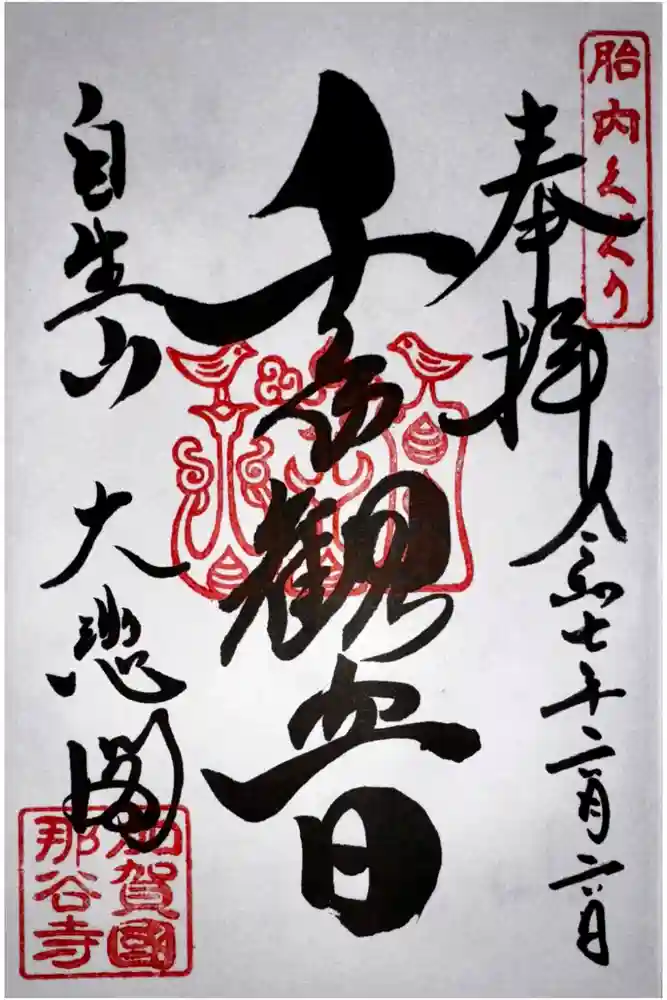 胎内くぐり
奉拝
令和七年二月六日
千手観音
自生山
大悲閣
加賀國
那谷寺